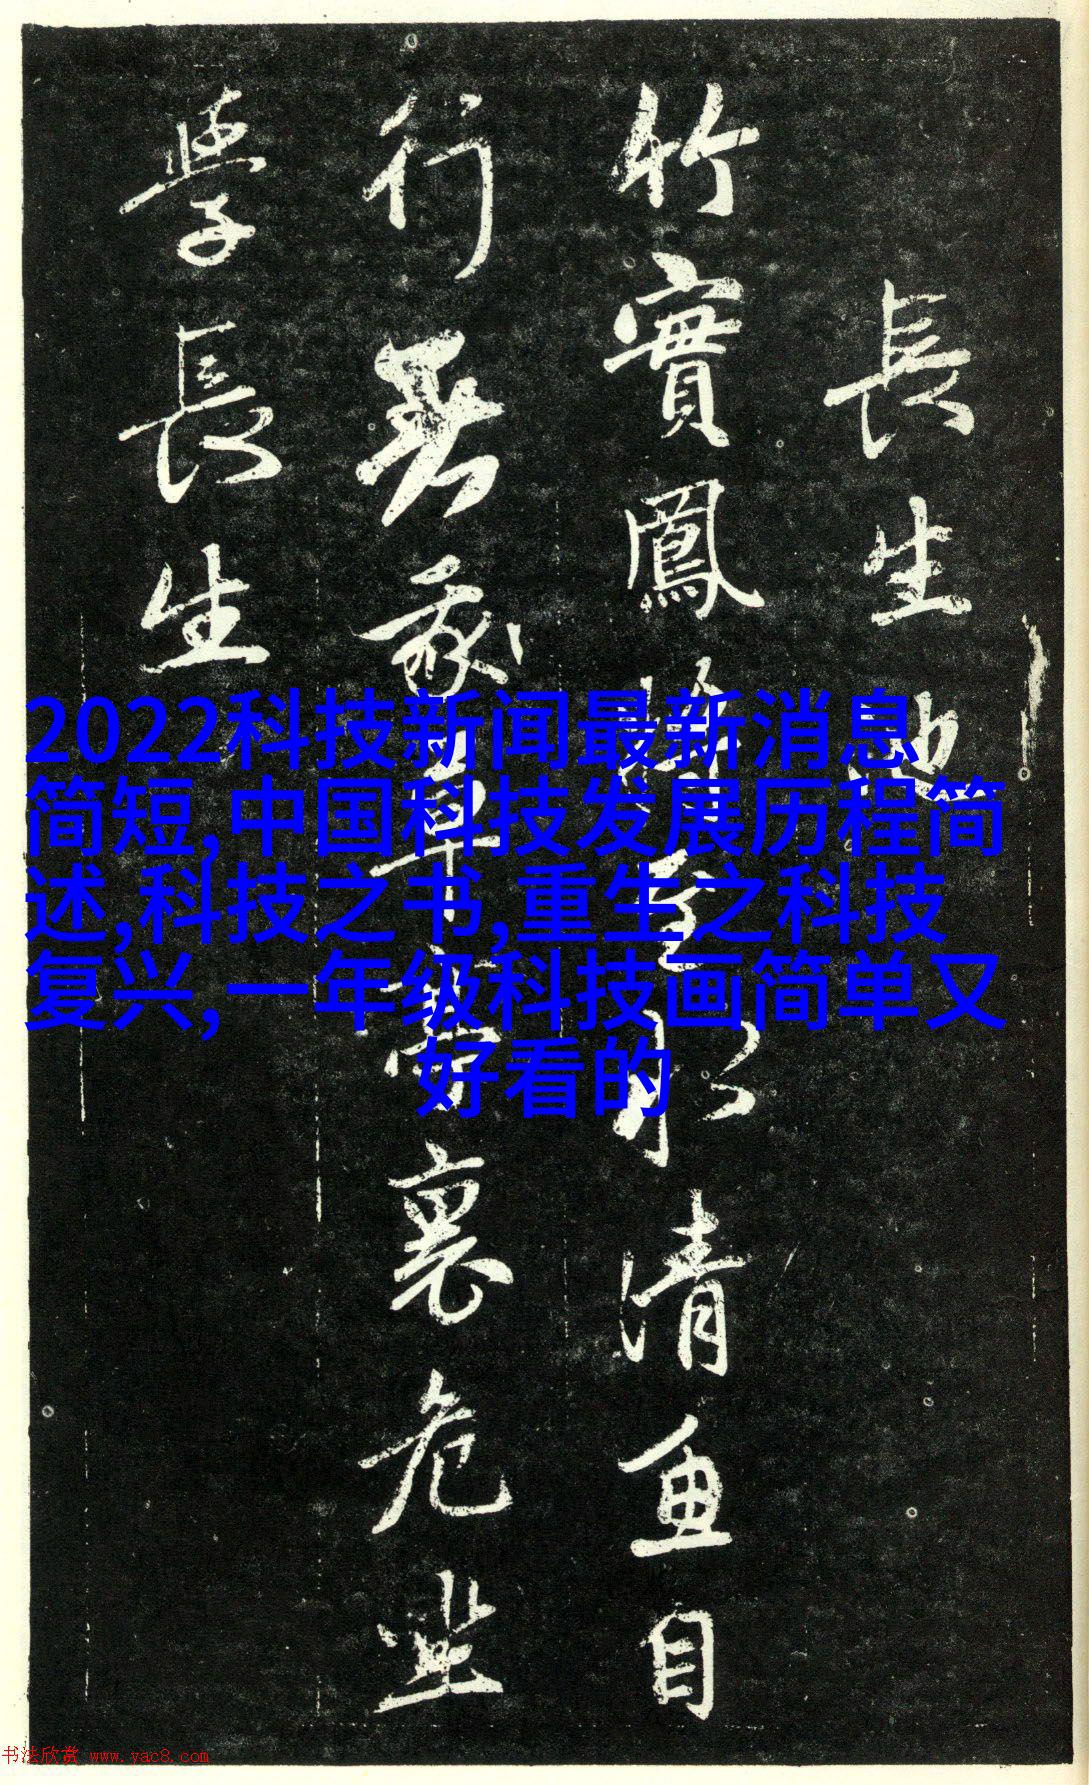 長生池
竹實鳳將至水清魚自
行君家草堂裏危坐
學長生
2022科技新闻最新消息
简短,中国科技发展历程简
述,科技之书,重生之科技
复兴, 一年级科技画简单又
好看的
书法欣赏 www.yac8.com